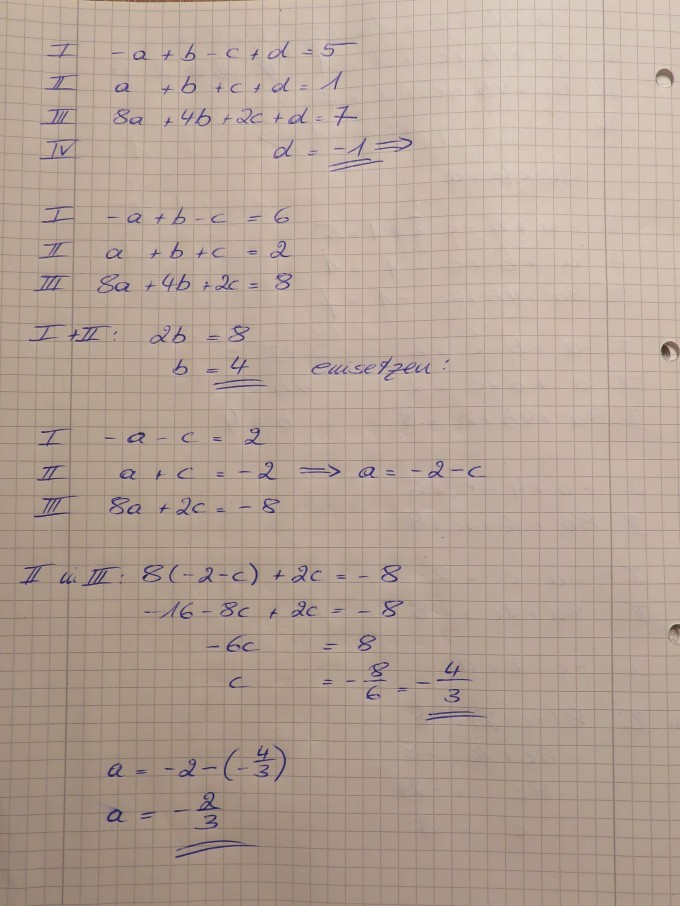 I -a + b - c + d = 5
II a + b + c + d = 1
III 8a + 4b + 2c + d = 7
IV d = -1 ⇒
I -a + b - c = 6
II a + b + c = 2
III 8a + 4b + 2c = 8
I + II : 2b = 8
b = 4 einsetzen :
I -a - c = 2
II a + c = -2 ⇒ a = -2 - c
III 8a + 2c = -8
II in III : 8(-2-c) + 2c = -8
-16 - 8c + 2c = -8
-6c = 8
c = -8/6 = -4/3
a = -2 - (-4/3)
a = -2/3